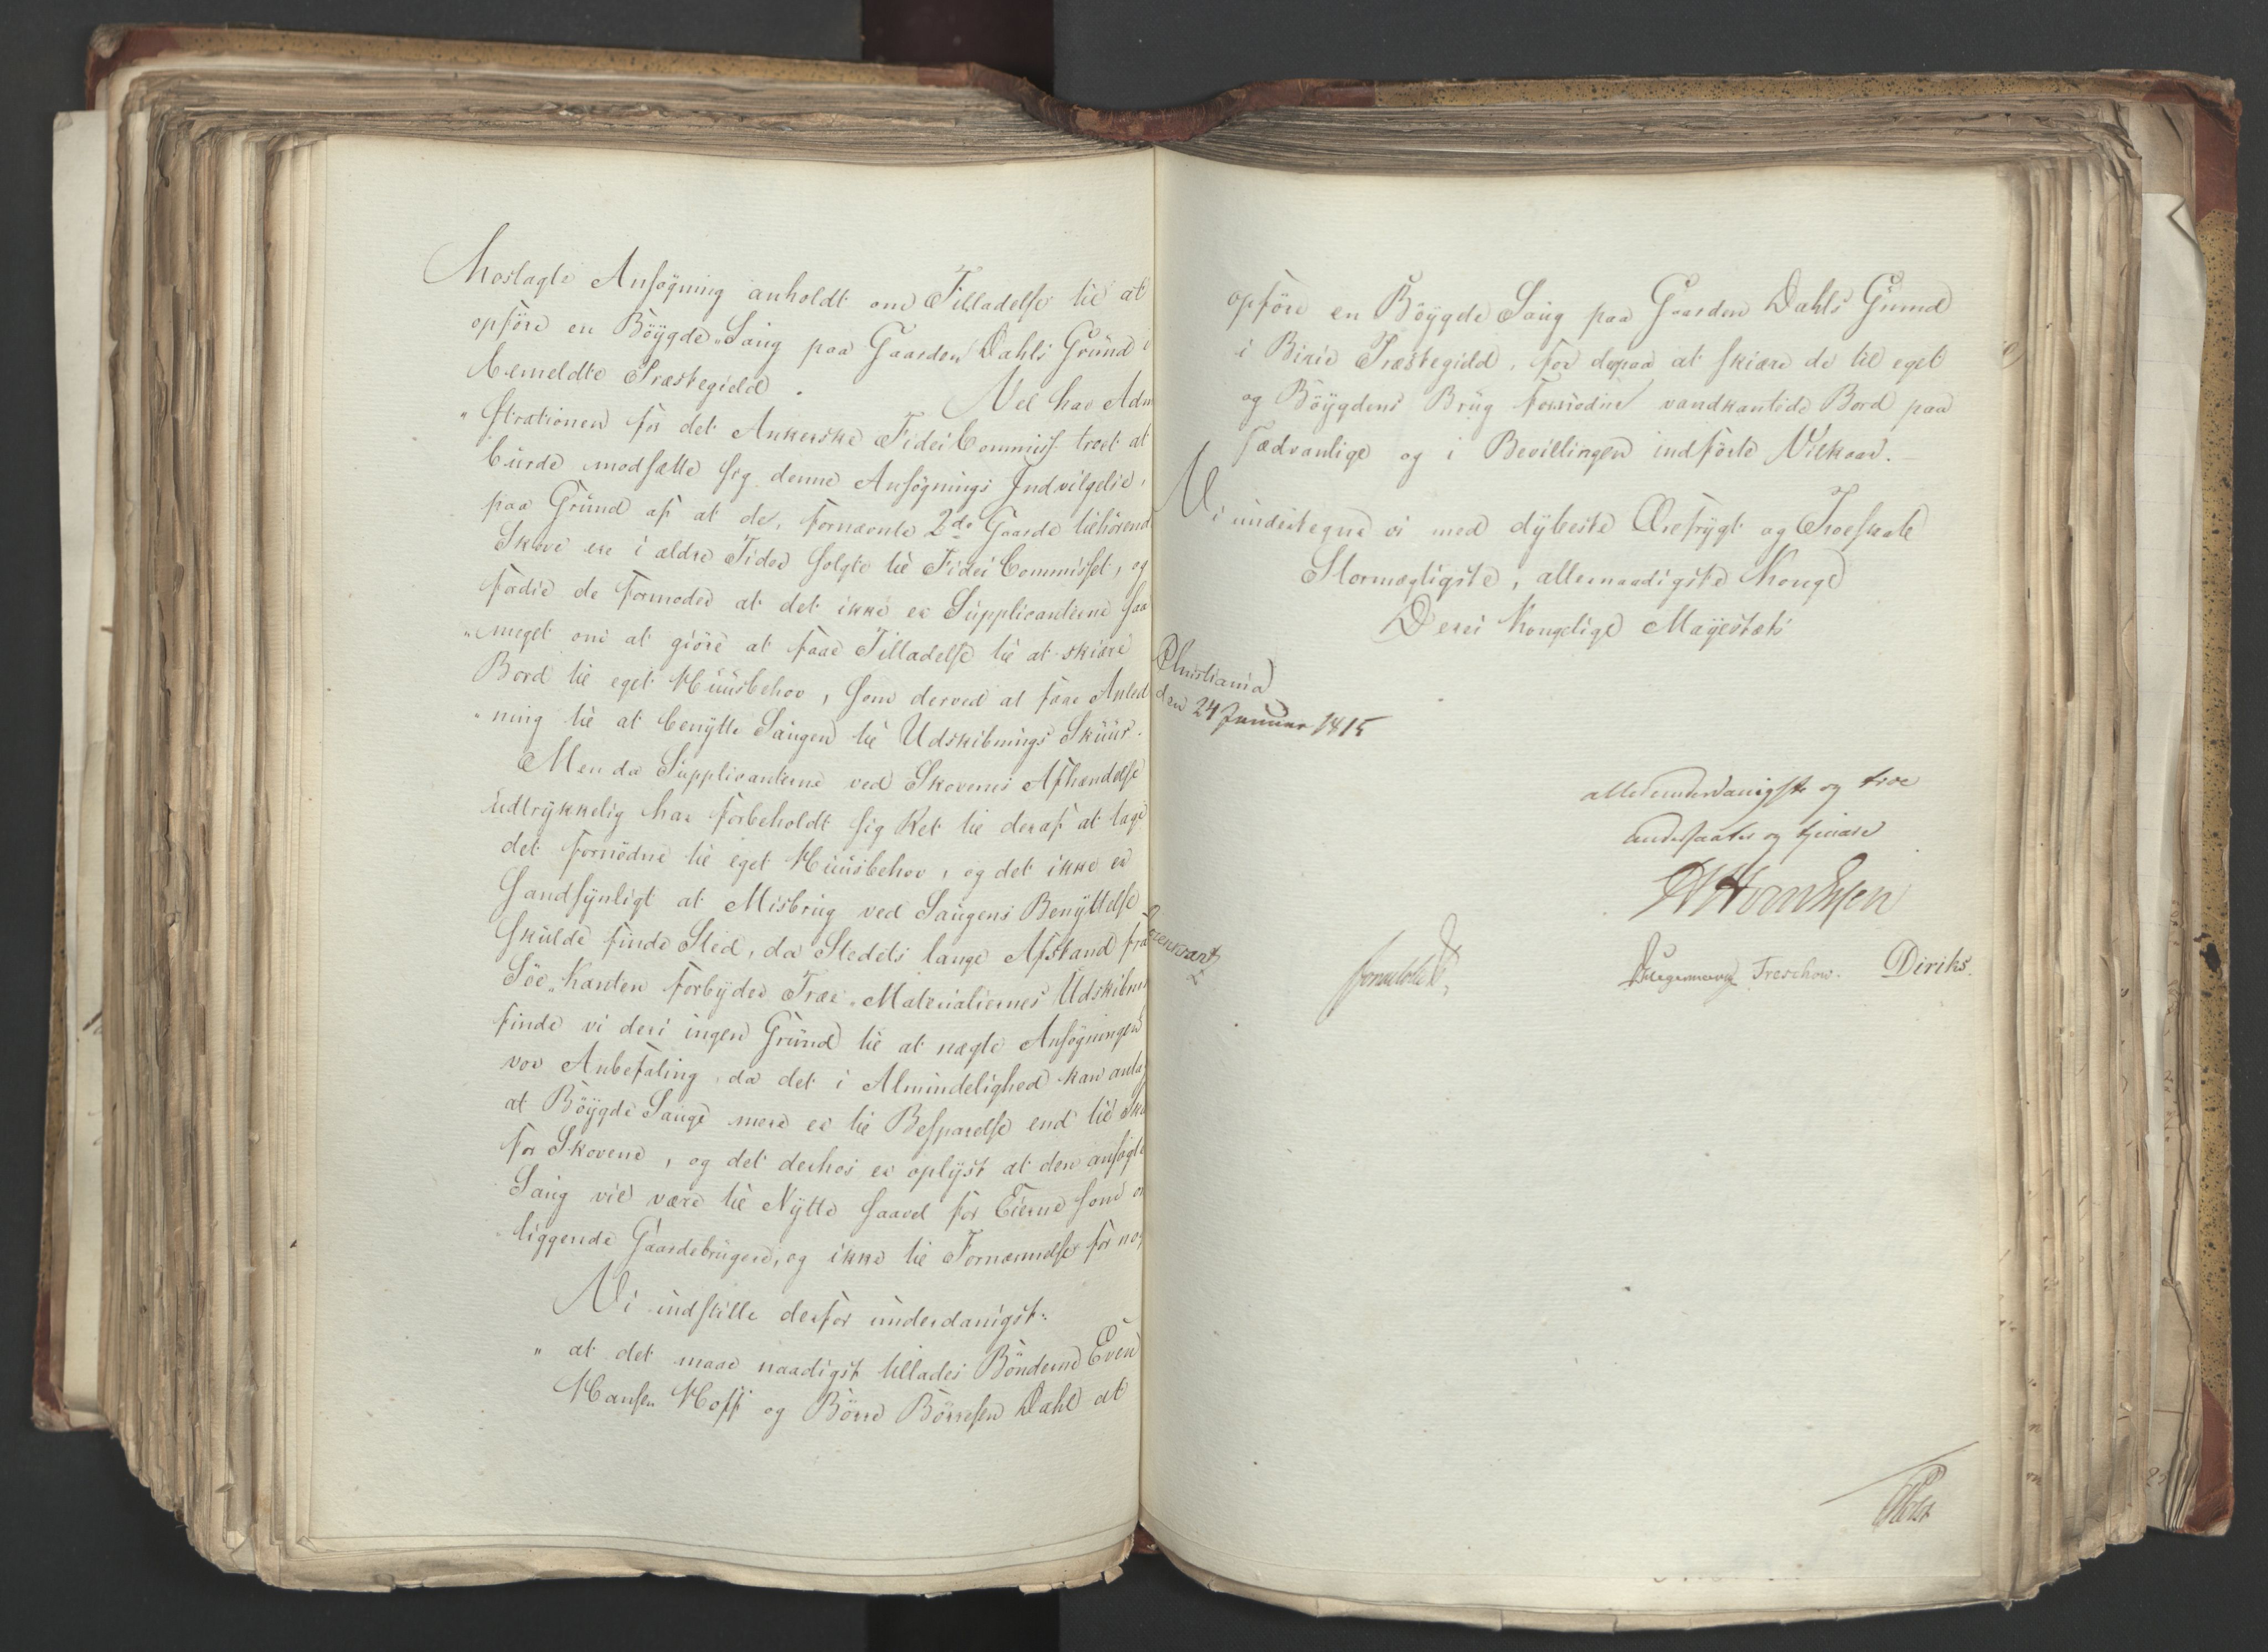 hoslagte Ansøgning anholdt om Tilladelse til at
opføre en Bøÿgde„Saug paa Gaarden Dahls Grund i
bemeldte Præstegield. Vel har Adm
„strationen for det Ankerske FideiCommiss troet at
burde modsætte sig denne Ansøgnings Indvilgelse,
paa Grund af at de, fornævnte 2de Gaarde tilhørend
Skove ere i ældre Tider solgte til FideiCommisset, og
fordie de formoder at det ikke er Supplicanterne saa
„meget om at giøre at faae Tilladelse til at skiære
Bord til eget Huusbehov, som derved at faae Anled
„ning til at benÿtte Saugen til Udskibnings Skuur.
Men da Supplicanterne ved Skovenes Afhændelse
udtrÿkkelig har forbeholdt sig Ret til deraf at tage
det fornødne til eget Huusbehov, og det ikke er
sandsÿnligt at Misbrug ved Saugens Benÿttelse
skulde finde Sted, da Stedets lange Afstand fra
Søe„kanten forbÿder Træe„Materialiernes Udskibni
finde vi deri ingen Grund til at nægte Ansøgningen
vor Anbefaling, da det i Almindelighed kan antag
at Bøÿgde Sauge mere er til Besparelse end til Ska
for Skovene, og det derhos er oplÿst at den ansøgte
Saug vil være til Nÿtte saavel for Eierne som om
liggende Gaardebrugere, og ikke til Fornærmelse for nog
Vi indstille derfor underdanigst:
„ at det maae naadigst tillades Bønderne Even
Hansen Hoff og Børre Børresen Dahl at
opføre en Bøÿgde Saug paa Gaarden Dahls Grund
i Birie Præstegield, for derpaa at skiære de til eget
og Bøÿgdens Brug fornødne vandkantede Bord paa
sædvanlige og i Bevillingen indførte Vilkaar.
Vi undertegne vi med dÿbeste Ærefrÿgt og Troeskab
Stormægtigste, allernaadigste Konge
Deres Kongelige Mayestæts
Christiania
den 24 Januar 1815
allerunderdanigste og troe
Undersaatter og tjenere
Sommerhielm
Diegermann Treschow. Diriks.